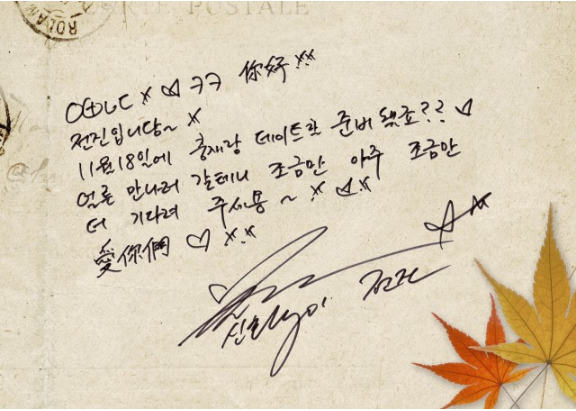 POSTALE
♡ ㅋㅋ 你好
전진입니당~
11월 18일에 충재랑 데이트할 준비 됐죠?? ♡
얼른 만나러 갈테니 조금만 아주 조금만
더 기다려 주세용~ ♡
愛你們 ♡
전진